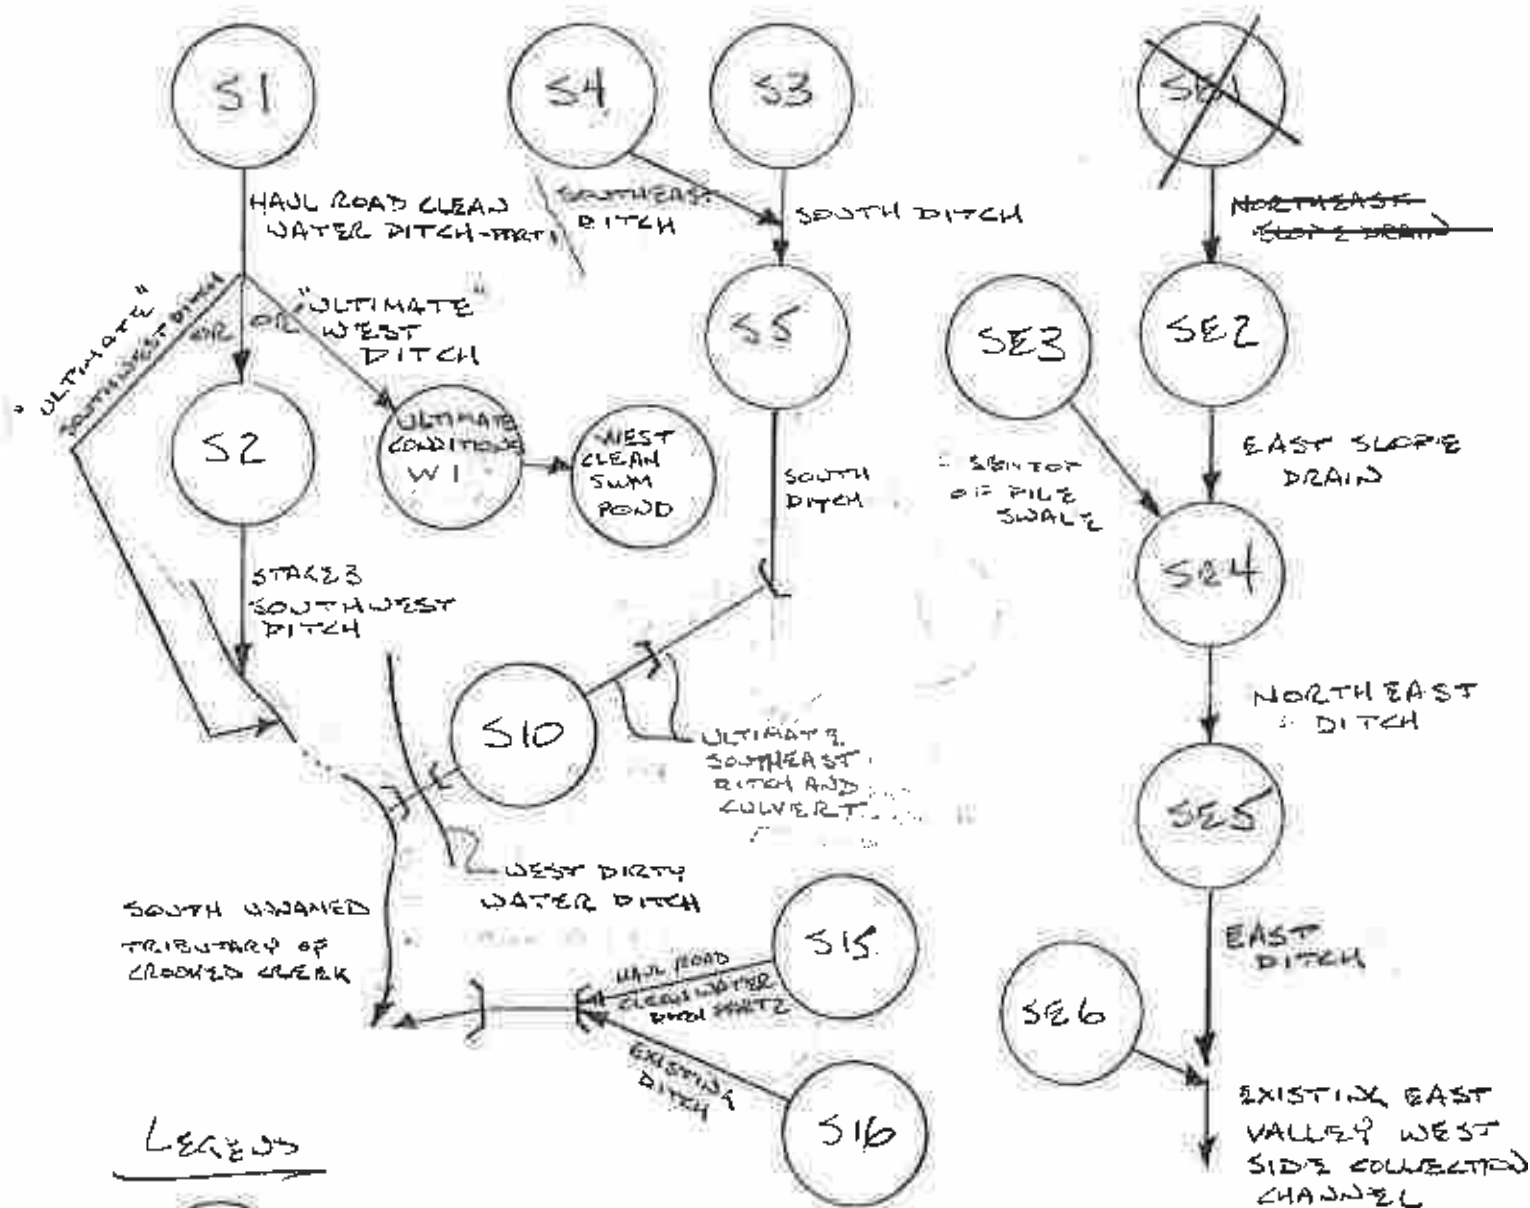 S1
S4
S3
HAUL ROAD CLEAN
WATER DITCH-PART 1
SOUTHEAST
DITCH
SOUTH DITCH
NORTHEAST
SLOPE DRAIN
"ULTIMATE"
SOUTHWEST DITCH
OR
OR
"ULTIMATE"
WEST
DITCH
S5
SE3
SE2
S2
ULTIMATE
CONDITIONS
W1
WEST
CLEAN
SWM
POND
SOUTH
DITCH
EAST SLOPE
DRAIN
TOP
OF PILE
SWALE
SE4
STAGE 3
SOUTHWEST
DITCH
S10
ULTIMATE
SOUTHEAST
DITCH AND
CULVERT
NORTHEAST
DITCH
SE5
WEST DIRTY
WATER DITCH
SOUTH UNNAMED
TRIBUTARY OF
CROOKED CREEK
S15
HAUL ROAD
CLEAN WATER
DITCH PART 2
EXISTING
DITCH
S16
EAST
DITCH
SE6
EXISTING EAST
VALLEY WEST
SIDE COLLECTION
CHANNEL
LEGEND